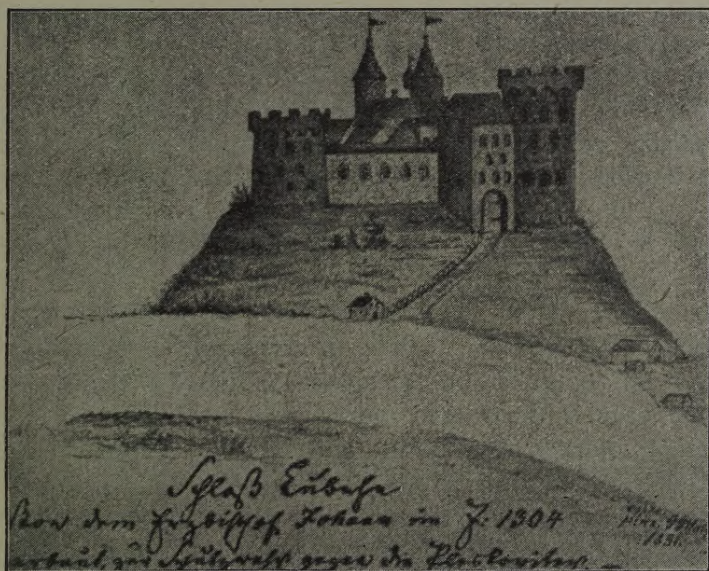 Schloß Lubahn
Von dem Erzbischof Johann im J: 1304
erbaut, zur Schutzwehr gegen die Pleskoviter. —
1831.